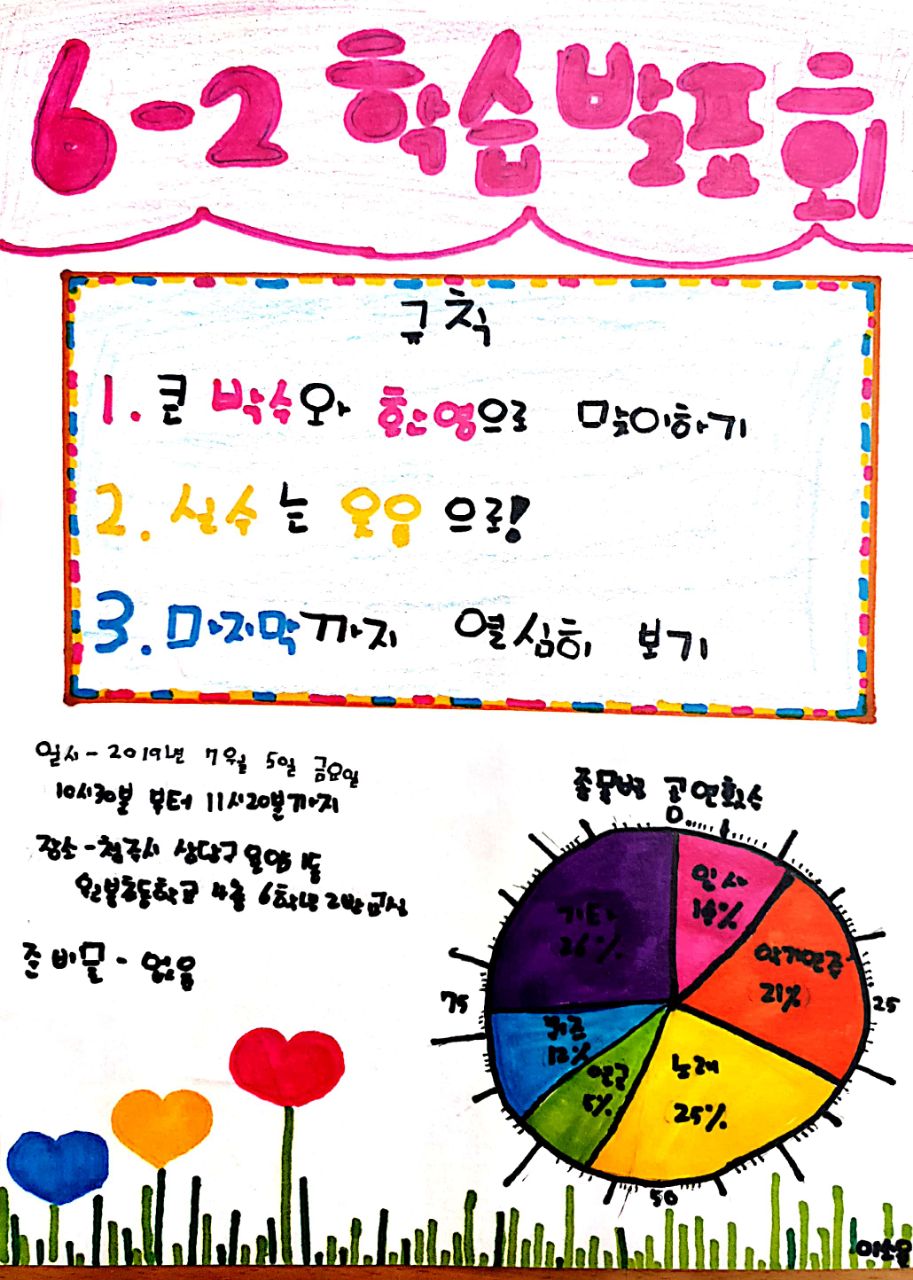 6-2 학습발표회
규칙
1. 큰 박수와 환영으로 맞이하기
2. 실수는 웃음으로!
3. 마지막까지 열심히 보기
일시 - 2019년 7월 5일 금요일
10시30분 부터 11시20분까지
장소 - 청주시 상당구 용암1동
원봉초등학교 4층 6학년 2반 교실
준비물 - 없음
종목별 공연횟수
0
인사
악기연주
21%
25
노래
25%
50
연극
5%
12%
75
기타
26%